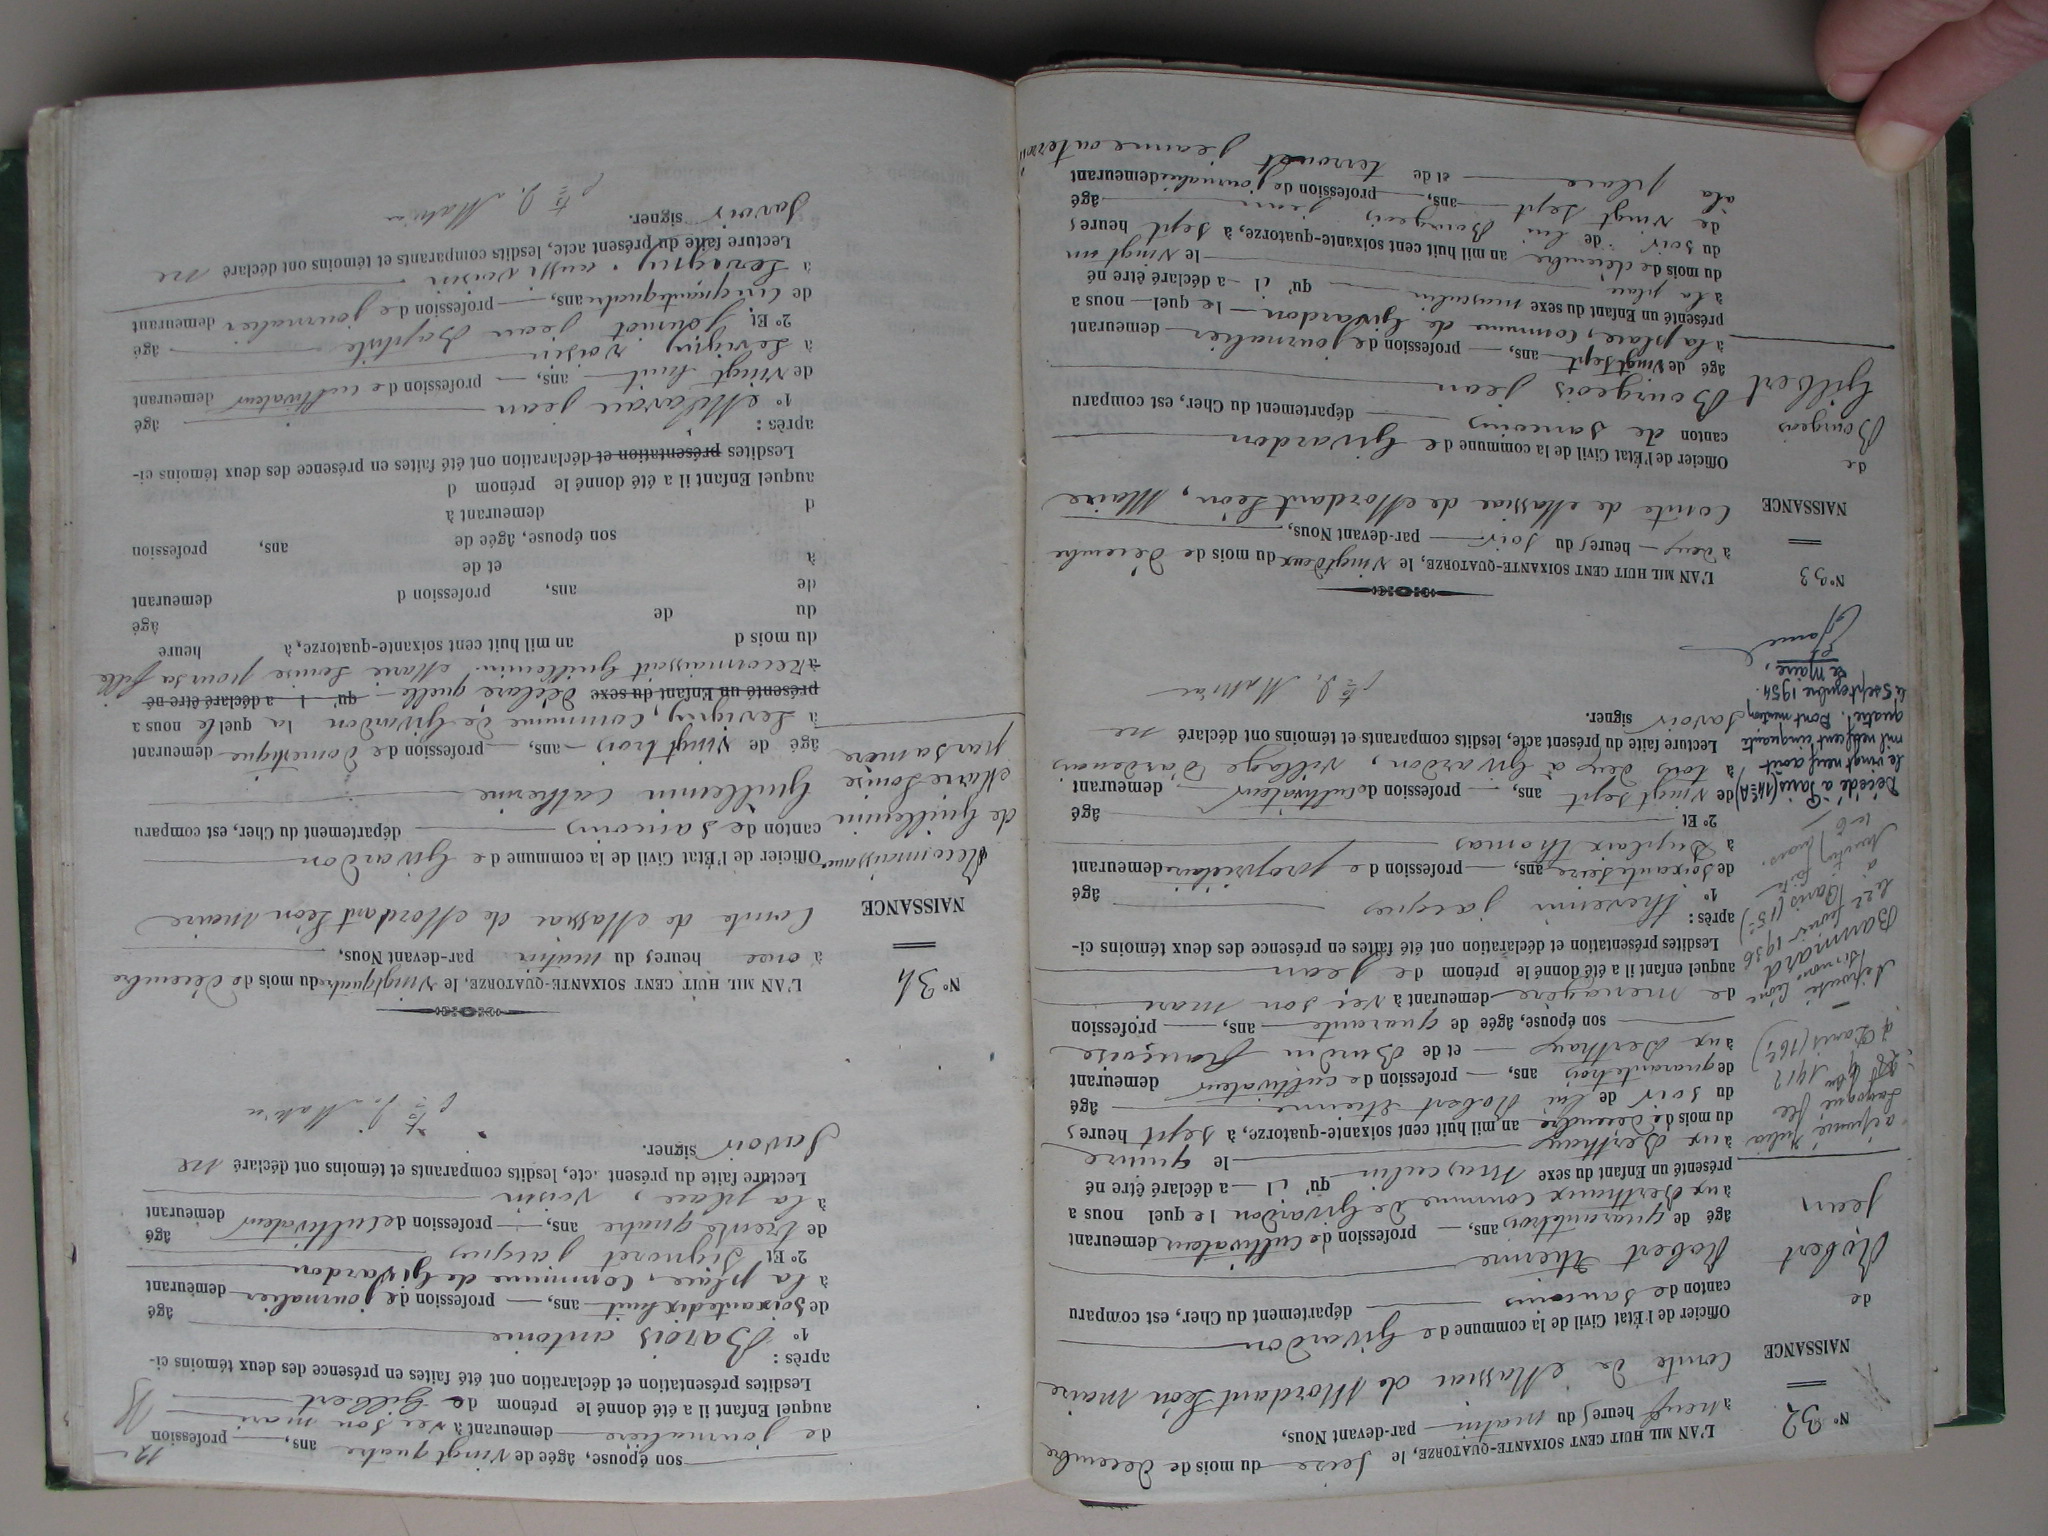 N° 32
NAISSANCE
de
Robert
Jean
L'AN MIL HUIT CENT SOIXANTE-QUATORZE, le seize du mois de Decembre
à neuf heures du matin par-devant Nous,
Comte de Massiac de Mordant Léon maire
Officier de l'État Civil de la commune de Givardon
canton de Sancoins département du Cher, est comparu
Robert Etienne
âgé de quarantetrois ans, profession de cultivateur demeurant
aux Berthaux commune de Givardon lequel nous a
présenté un Enfant du sexe masculin qu'il a déclaré être né
aux Berthaux le quinze
du mois de décembre an mil huit cent soixante-quatorze, à sept heures
du soir de lui Robert Etienne âgé
de quarantetrois ans, profession de cultivateur demeurant
aux Berthaux et de Burdin Françoise
son épouse, âgée de quarante ans, profession
de menagère demeurant à vec son mari
auquel enfant il a été donné le prénom de Jean
Lesdites présentation et déclaration ont été faites en présence des deux témoins ci-
après :
1° thevenin jacques âgé
de soixanteseize ans, profession de propriétaire demeurant
à Duplaix thomas
2° Et âgé
de vingt sept ans, profession de cultivateur demeurant
à tous deux à Givardon, village d'ardenais
Lecture faite du présent acte, lesdits comparants et témoins ont déclaré ne
savoir signer.
à Paris (16e)
Bannard
Paris (15e)
Décédé à Paris (14e A)
le vingt neuf août
mil neuf cent cinquante
quatre. Dont mention
le 5 septembre 1954.
Le Maire,
N° 33
NAISSANCE
de
Bourgeois
Gilbert
L'AN MIL HUIT CENT SOIXANTE-QUATORZE, le vingtdeux du mois de Décembre
à deux heures du soir par-devant Nous,
Comte de Massiac de Mordant Léon, Maire
Officier de l'État Civil de la commune de Givardon
canton de Sancoins département du Cher, est comparu
Bourgeois Jean
âgé de vingt sept ans, profession de journalier demeurant
à la place, commune de Givardon lequel nous a
présenté un Enfant du sexe masculin qu'il a déclaré être né
à la place le vingt un
du mois de décembre an mil huit cent soixante-quatorze, à sept heures
du soir de lui Bourgeois Jean âgé
de vingt sept ans, profession de journalier demeurant
à la place et de terrondt jeanne
son épouse, âgée de vingt quatre ans, profession
de journaliere demeurant à vec son mari
auquel Enfant il a été donné le prénom de Gilbert
Lesdites présentation et déclaration ont été faites en présence des deux témoins ci-
après :
1° Barois antoine âgé
de soixantedixhuit ans, profession de journalier demeurant
à la place, commune de Givardon
2° Et Signoret jacques âgé
de trente quatre ans, profession de cultivateur demeurant
à la place, voisin
Lecture faite du présent acte, lesdits comparants et témoins ont déclaré ne
Savoir signer.
N° 34
NAISSANCE
Reconnaissance
de Guillemin
Marie Louise
par sa mère
L'AN MIL HUIT CENT SOIXANTE-QUATORZE, le vingtquatre du mois de Décembre
à onze heures du matin par-devant Nous,
Comte de Massiac de Mordant Léon maire
Officier de l'État Civil de la commune de Givardon
canton de Sancoins département du Cher, est comparu
Guillemin Catherine
âgé de vingt trois ans, profession de Domestique demeurant
à Levigny, commune de Givardon la quelle nous a
présenté un Enfant du sexe déclaré quelle qu' l a déclaré être né
à Reconnaissait Guillemin Marie Louise pour sa fille
du mois d an mil huit cent soixante-quatorze, à heure
du de âgé
de ans, profession d demeurant
à et de
son épouse, âgée de ans, profession
d demeurant à
auquel Enfant il a été donné le prénom d
Lesdites présentation et déclaration ont été faites en présence des deux témoins ci-
après :
1° jean âgé
de vingt huit ans, profession de cultivateur demeurant
à Levigny voisin
2° Et jean Baptiste âgé
de cinquantequatre ans, profession de journalier demeurant
à Levigny, aussi voisin
Lecture faite du présent acte, lesdits comparants et témoins ont déclaré ne
Savoir signer.